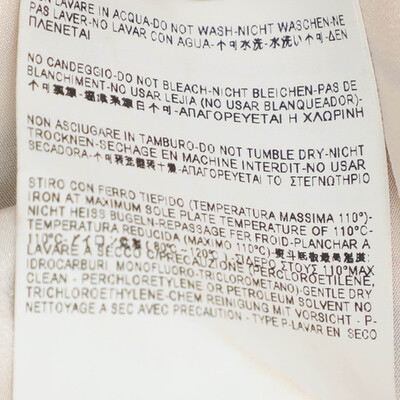 LAVARE IN ACQUA-DO NOT WASH-NICHT WASCHEN-NE
PAS LAVER-NO LAVAR CON AGUA-不可水洗-水洗い不可-ΔΕΝ
ΠΛΕΝΕΤΑΙ
NO CANDEGGIO-DO NOT BLEACH-NICHT BLEICHEN-PAS DE
BLANCHIMENT-NO USAR LEJIA (NO USAR BLANQUEADOR)-
不可漂 不可-ΑΠΑΓΟΡΕΥΕΤΑΙ Η ΧΛΩΡΙΝΗ
NON ASCIUGARE IN TAMBURO-DO NOT TUMBLE DRY-NICHT
TROCKNEN-SECHAGE EN MACHINE INTERDIT-NO USAR
SECADORA-不可 ΑΠΑΓΟΡΕΥΕΤΑΙ ΤΟ ΣΤΕΓΝΩΤΗΡΙΟ
STIRO CON FERRO TIEPIDO (TEMPERATURA MASSIMA 110°)-
IRON AT MAXIMUM SOLE PLATE TEMPERATURE OF 110°C-
NICHT HEISS BUGELN-REPASSAGE FER FROID-PLANCHAR A
TEMPERATURA REDUCIDA (MAXIMO 110°C)-
110°C ΣΙΔΕΡΟ ΣΤΟΥΣ 110°MAX
LAVARE A SECCO C/PRECAUZIONE (PERCLOROETILENE,
IDROCARBURI MONOFLUORO-TRICLOROMETANO)-GENTLE DRY
CLEAN - PERCHLORETYLENE OR PETROLEUM SOLVENT NO
TRICHLOROETHYLENE-CHEM REINIGUNG MIT VORSICHT - P-
NETTOYAGE A SEC AVEC PRECAUTION - TYPE P-LAVAR EN SECO